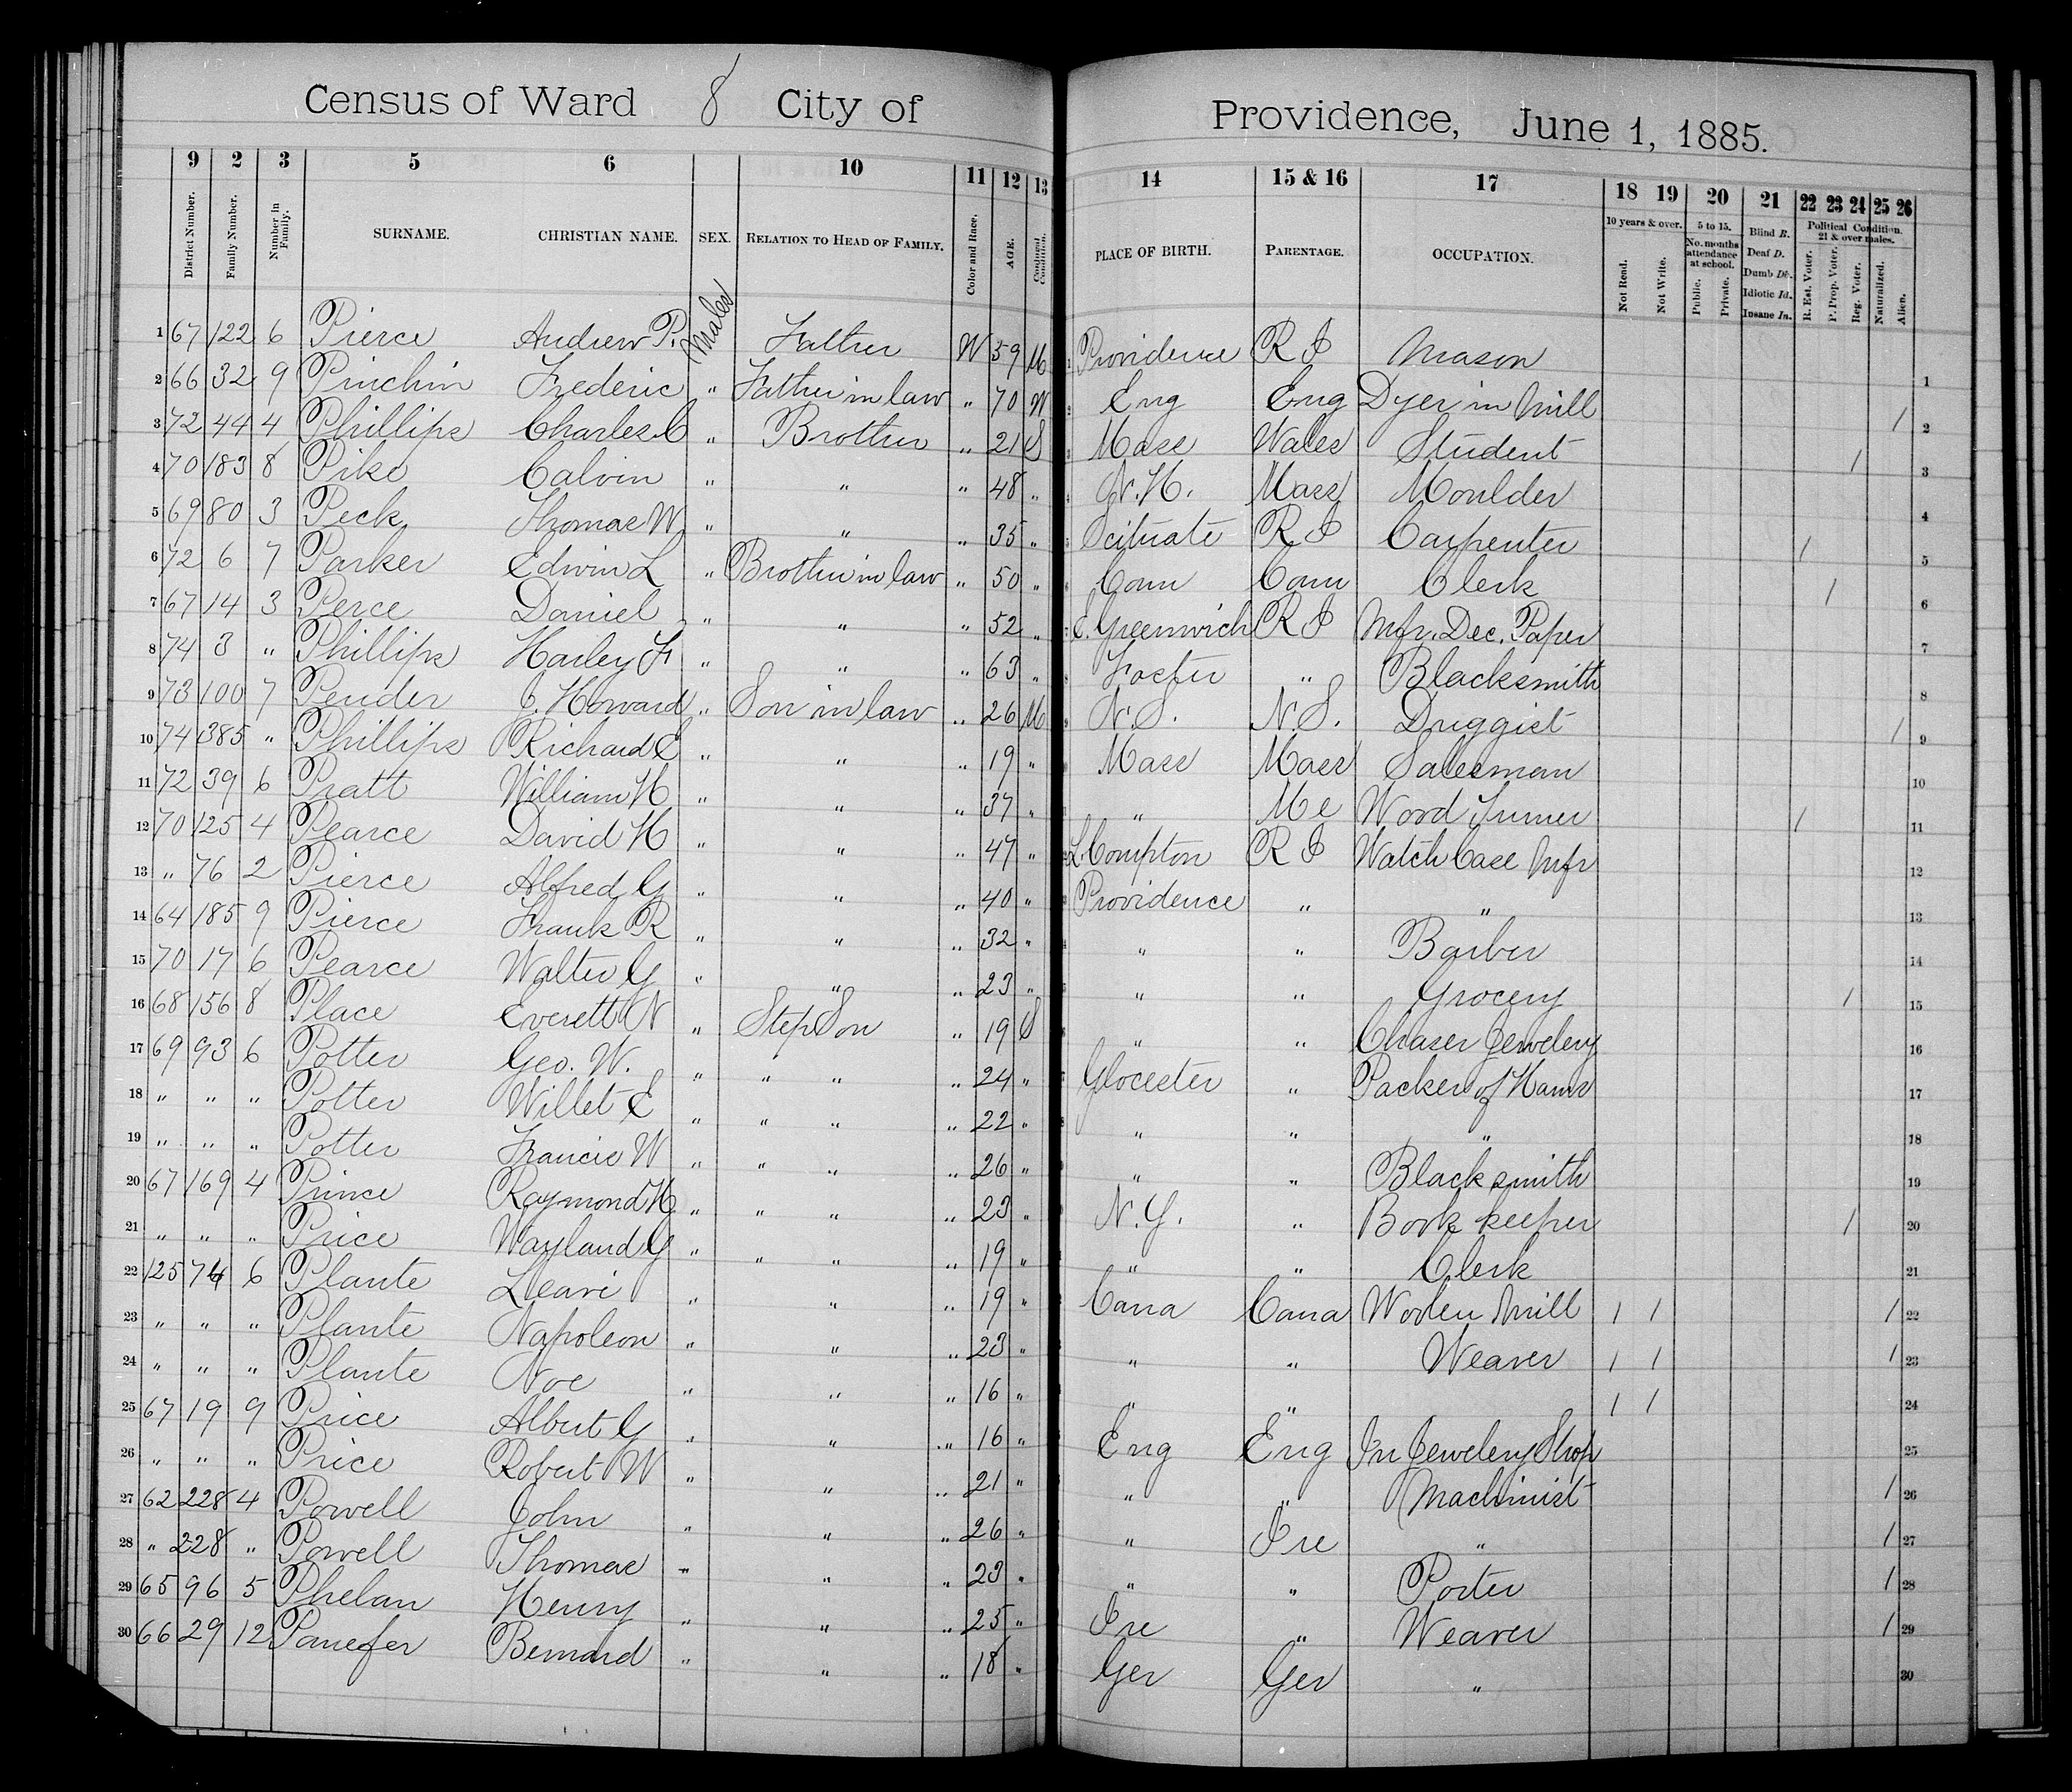 Census of Ward 8 City of Providence, June 1, 1885.
9 2 3 5 6 10 11 12 13 14 15 & 16 17 18 19 20 21 22 23 24 25 26
District Number. Family Number. Number in Family. SURNAME. CHRISTIAN NAME. SEX. RELATION TO HEAD OF FAMILY. Color and Race. AGE. Conjugal Condition. PLACE OF BIRTH. PARENTAGE. OCCUPATION. 10 years & over. Not Read. Not Write. 5 to 15. No. months attendance at school. Public. Private. Blind B. Deaf D. Dumb Db. Idiotic Id. Insane In. Political Condition. 21 & over males. R. Est. Voter. P. Prop. Voter. Reg. Voter. Naturalized. Alien.
1 67 122 6 Pierce Andrew P. Males Father W 59 M Providence R I Mason 1
2 66 32 9 Pinchin Frederic " Father in law " 70 W Eng Eng Dyer in Mill / 2
3 72 44 4 Phillips Charles C " Brother " 21 S Mass Wales Student / 3
4 70 183 8 Pike Calvin " " " 48 " N.H. Mass Moulder 4
5 69 80 3 Peck Thomas W " " " 35 " Scituate R I Carpenter / 5
6 72 6 7 Parker Edwin L " Brother in law " 50 " Conn Conn Clerk / 6
7 67 14 3 Perce Daniel " " " 52 " E. Greenwich R I Mfr. Dec. Paper 7
8 74 3 " Phillips Harley F " " " 63 " Foster " Blacksmith 8
9 73 100 7 Pender J. Howard " Son in law " 26 M N.S. N.S. Druggist / 9
10 74 385 " Phillips Richard E " " " 19 " Mass Mass Salesman 10
11 72 39 6 Pratt William H " " " 37 " " Me Wood Turner / 11
12 70 125 4 Pearce David H " " " 47 " L. Compton R I Watch Case Mfr 12
13 " 76 2 Pierce Alfred G " " " 40 " Providence " " 13
14 64 185 9 Pierce Frank R " " " 32 " " " Barber 14
15 70 17 6 Pearce Walter G " " " 23 " " " Grocery / 15
16 68 156 8 Place Everett N " Step Son " 19 S " " Chaser Jewelery 16
17 69 93 6 Potter Geo. W. " " " " 24 " Glocester " Packer of Hams 17
18 " " " Potter Willet E " " " " 22 " " " " 18
19 " " " Potter Francis W " " " " 26 " " " Blacksmith 19
20 67 169 4 Prince Raymond H " " " " 23 " N.Y. " Book keeper / 20
21 " " " Price Wayland G " " " " 19 " " " Clerk 21
22 125 74 6 Plante Leavi " " " 19 " Cana Cana Woolen Mill / / / 22
23 " " " Plante Napoleon " " " 23 " " " Weaver / / / 23
24 " " " Plante Noe " " " 16 " " " / / 24
25 67 19 9 Price Albert G " " " 16 " Eng Eng In Jewelery Shop 25
26 " " " Price Robert W " " " 21 " " " Machinist / 26
27 62 228 4 Powell John " " " 26 " " Ire " / 27
28 " 228 " Powell Thomas " " " 23 " " " Porter / 28
29 65 96 5 Phelan Henry " " " 25 " Ire " Weaver / 29
30 66 29 12 Panefer Bernard " " " 18 " Ger Ger " 30